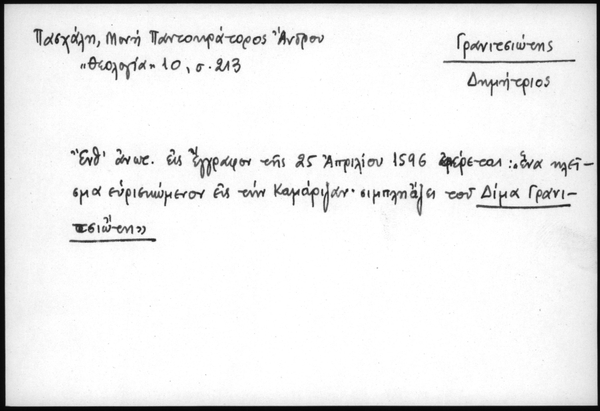 Πασχάλη, Μονή Παντοκράτορος Ἄνδρου
"Θεολογία" 10, σ. 213
Γρανιτσιώτης
Δημήτριος
Ἔνθ' ἄνωτ. εἰς ἔγγραφον τῆς 25 Ἀπριλίου 1596 φέρεται: "ἕνα κλεῖ-
σμα εὑρισκώμενον εἰς τὴν Καμάριζαν· σιμπληάζει τοῦ Δίμα Γρανι-
τσιώτη"